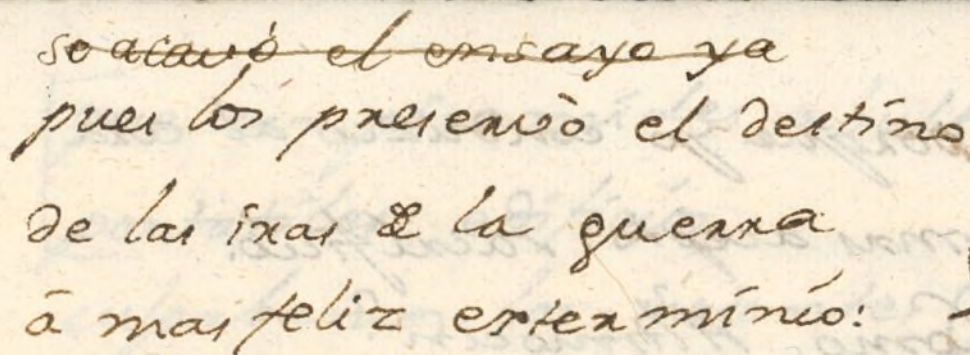 se acavò el ensayo ya
pues los preservò el destino
de las iras de la guerra
à mas feliz esterminio: